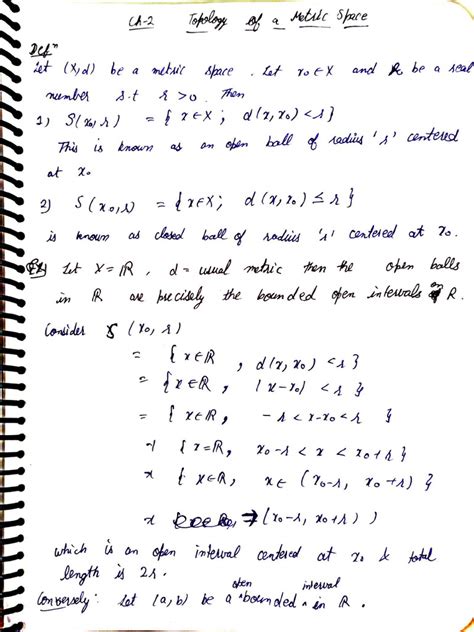 Ch-2 Topology of a Metric Space
Defⁿ
Let (X,d) be a metric space. Let x₀ ∈ X and r be a real
number s.t r > 0. Then
1) S(x₀, r) = { x ∈ X ; d(x, x₀) < r }
This is known as an open ball of radius 'r' centered
at x₀.
2) S(x₀, r) = { x ∈ X ; d(x, x₀) ≤ r }
is known as closed ball of radius 'r' centered at x₀.
Ex) Let X = ℝ, d = usual metric then the open balls
in ℝ are precisely the bounded open intervals on ℝ.
Consider S (x₀, r)
= { x ∈ ℝ , d(x, x₀) < r }
= { x ∈ ℝ , |x-x₀| < r }
= { x ∈ ℝ, -r < x-x₀ < r }
= { x = ℝ, x₀-r < x < x₀+r }
= { x ∈ ℝ, x ∈ (x₀-r, x₀+r) }
= (x₀-r, x₀+r) )
which is an open interval centered at x₀ & total
length is 2r.
Conversely: Let (a,b) be a open bounded interval in ℝ.